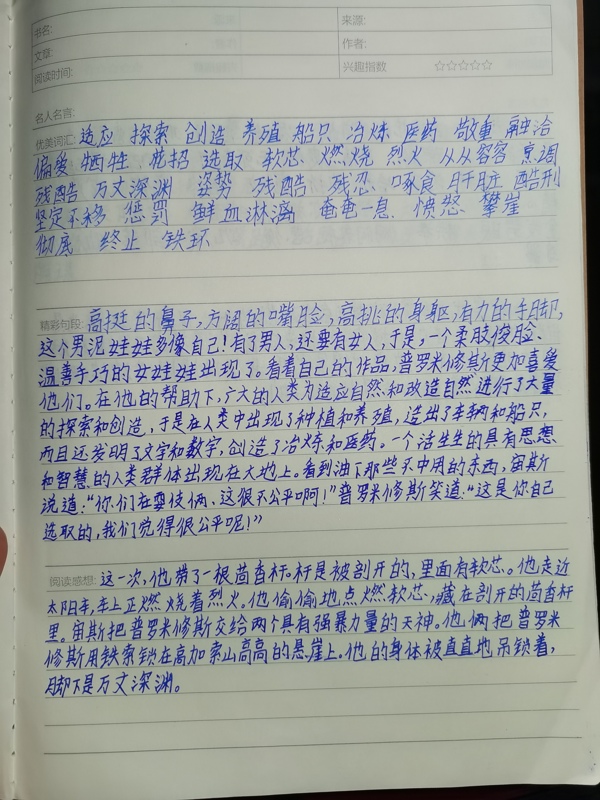 书名:
来源:
文章:
作者:
阅读时间:
兴趣指数 ☆☆☆☆☆
名人名言:
优美词汇: 适应 探索 创造 养殖 船只 冶炼 医药 敬重 融洽
偏爱 牺牲 花招 选取 软芯 燃烧 烈火 从从容容 烹调
残酷 万丈深渊 姿势 残酷 残忍 啄食 肝脏 酷刑
坚定不移 惩罚 鲜血淋漓 奄奄一息 愤怒 攀崖
彻底 终止 铁环
精彩句段: 高挺的鼻子,方阔的嘴脸,高挑的身躯,有力的手脚,
这个男泥娃娃多像自己!有了男人,还要有女人,于是,一个柔肢俊脸、
温善手巧的女娃娃出现了。看着自己的作品,普罗米修斯更加喜爱
他们。在他的帮助下,广大的人类为适应自然和改造自然进行了大量
的探索和创造,于是在人类中出现了种植和养殖,造出了车辆和船只,
而且还发明了文字和数字,创造了冶炼和医药。一个活生生的具有思想
和智慧的人类群体出现在大地上。看到油下那些不中用的东西,宙斯
说道:“你们在耍伎俩、这很不公平啊!”普罗米修斯笑道:“这是你自己
选取的,我们觉得很公平呢!”
阅读感想: 这一次,他带了一根茴香杆。杆是被剖开的,里面有软芯。他走近
太阳车,车上正燃烧着烈火。他偷偷地点燃软芯,藏在剖开的茴香杆
里。宙斯把普罗米修斯交给两个具有强暴力量的天神。他俩把普罗米
修斯用铁索锁在高加索山高高的悬崖上。他的身体被直直地吊锁着,
脚下是万丈深渊。